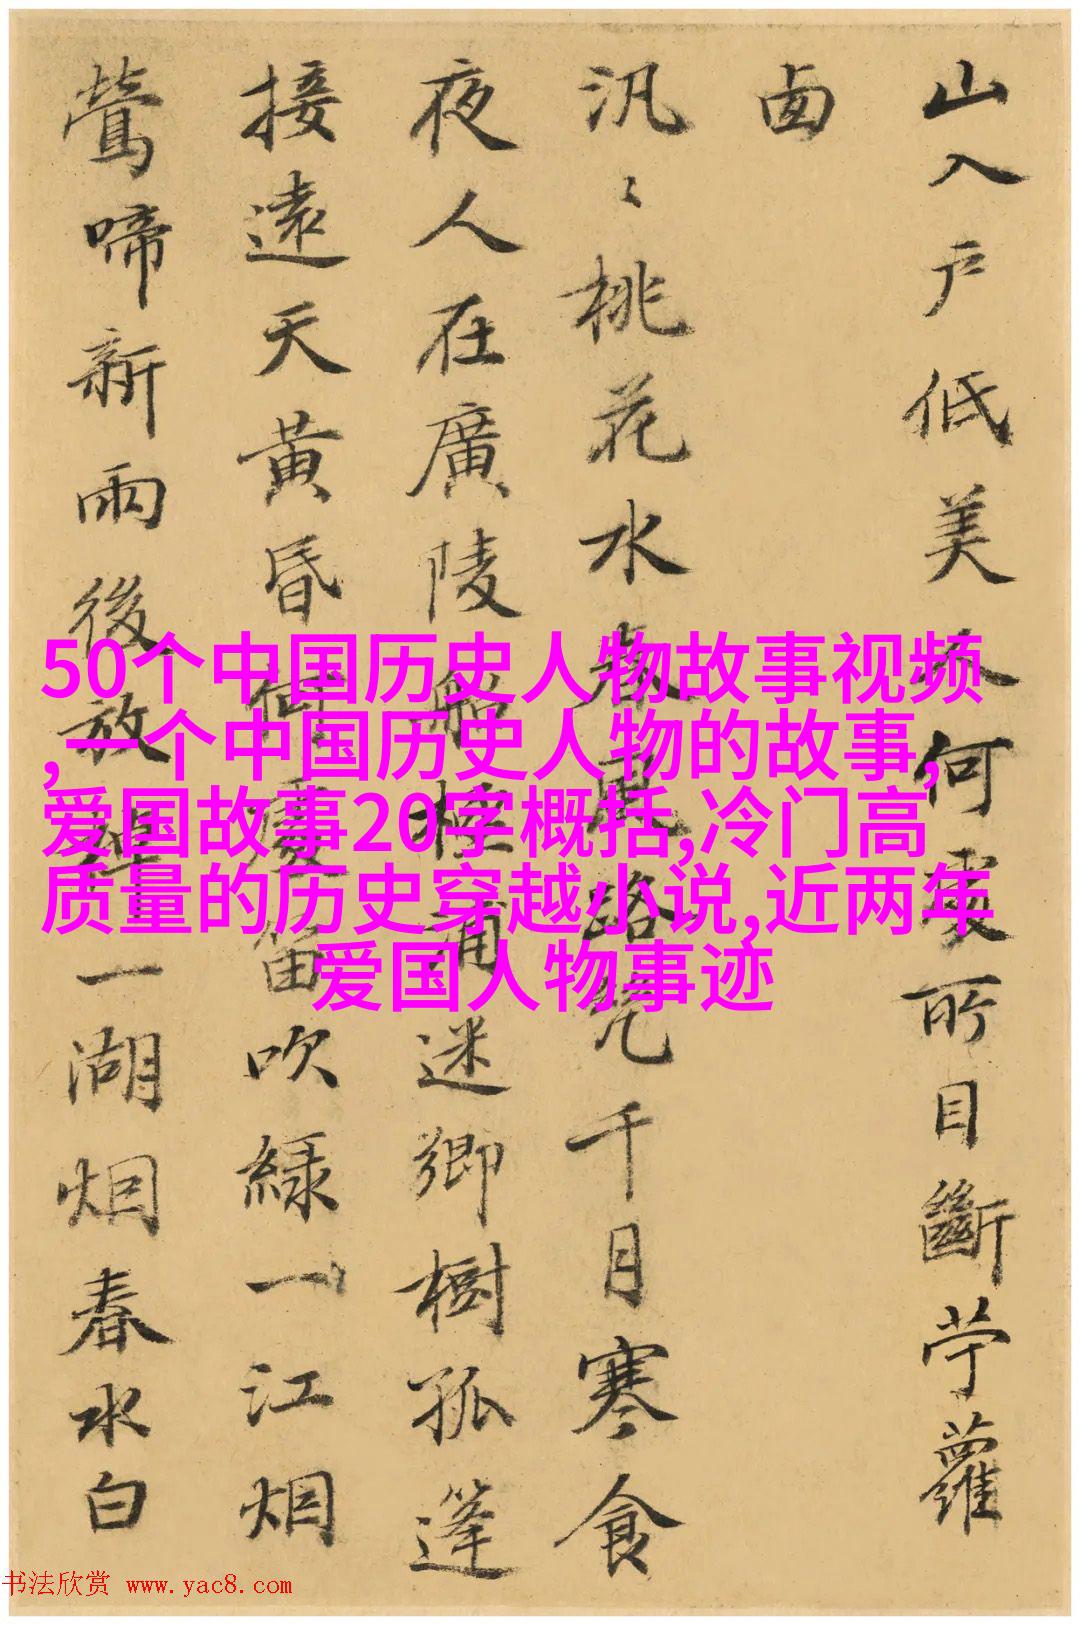 山入戶低美人何處所目斷苧蘿
汎〻桃花水春路幾千月寒食
夜人在廣陵船迷鄉樹孤篷
接遠天黃昏何處笛吹綠一江烟
鶯啼新雨後放一湖烟春水白
50个中国历史人物故事视频
,一个中国历史人物的故事,
爱国故事20字概括,冷门高
质量的历史穿越小说,近两年
爱国人物事迹
书法欣赏 www.yac8.com